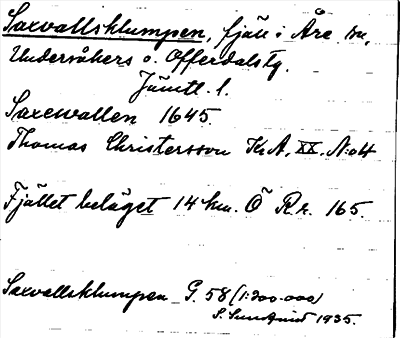 Saxvallsklumpen, fjäll i Åre sn,
Undersåkers o. Offerdals tg.
Jämtl. l.
Saxewallen 1645.
Thomas Christersson Kr.A. XX. N:o 4
Fjället beläget 14 km. Ö R.r. 165.
Saxvallsklumpen G. 58 (1:200.000)
S. 1935.